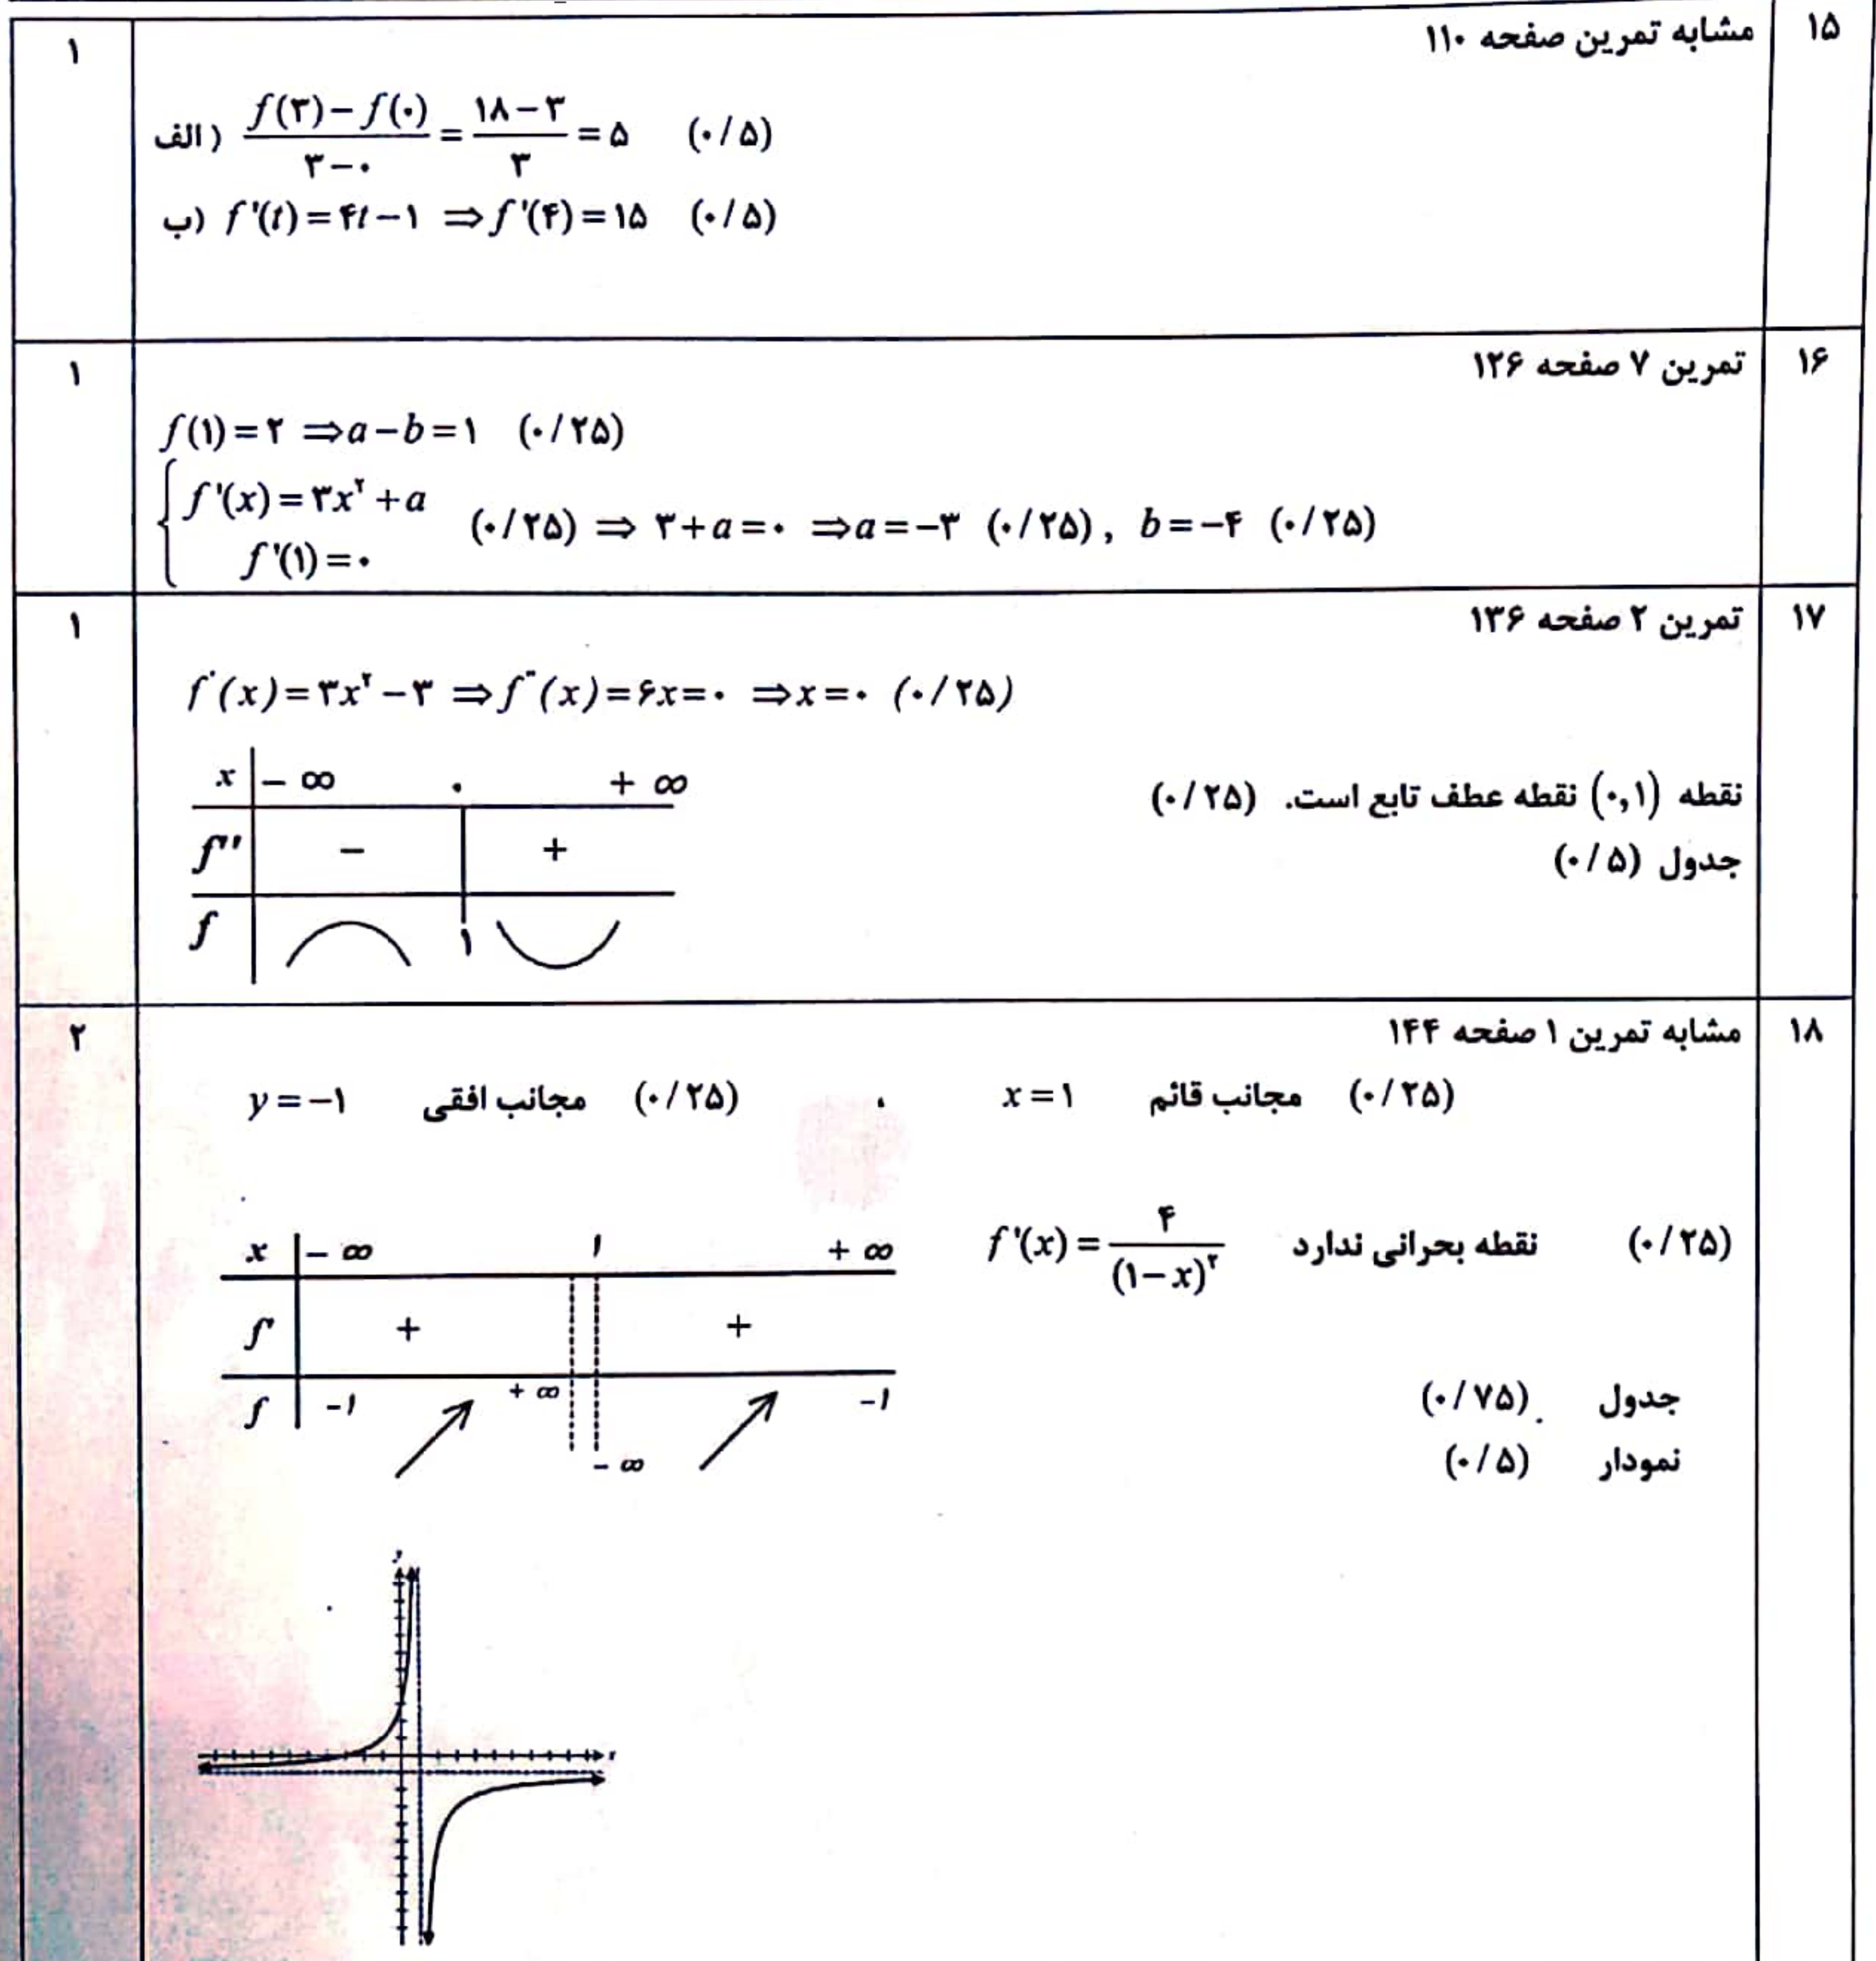 ۱۵ مشابه تمرین صفحه ۱۱۰ ۱
الف) (f(۳)−f(۰))/(۳−۰) = (۱۸−۳)/۳ = ۵ (۰/۵)
ب) f'(t)=۴t−۱ ⇒ f'(۴)=۱۵ (۰/۵)
۱۶ تمرین ۷ صفحه ۱۲۶ ۱
f(۱)=۲ ⇒ a−b=۱ (۰/۲۵)
{ f'(x)=۳x^۲+a
f'(۱)=۰ (۰/۲۵) ⇒ ۳+a=۰ ⇒ a=−۳ (۰/۲۵) , b=−۴ (۰/۲۵)
۱۷ تمرین ۲ صفحه ۱۳۶ ۱
f'(x)=۳x^۲−۳ ⇒ f"(x)=۶x=۰ ⇒ x=۰ (۰/۲۵)
نقطه (۰,۱) نقطه عطف تابع است. (۰/۲۵)
جدول (۰/۵)
x −∞ ۰ +∞
f'' − +
f ۱
۱۸ مشابه تمرین ۱ صفحه ۱۴۴ ۲
y=−۱ مجانب افقی (۰/۲۵) , x=۱ مجانب قائم (۰/۲۵)
f'(x)=۴/(۱−x)^۲ نقطه بحرانی ندارد (۰/۲۵)
x −∞ ۱ +∞
f' + +
f −۱ +∞ −∞ −۱
جدول (۰/۷۵)
نمودار (۰/۵)
y
x